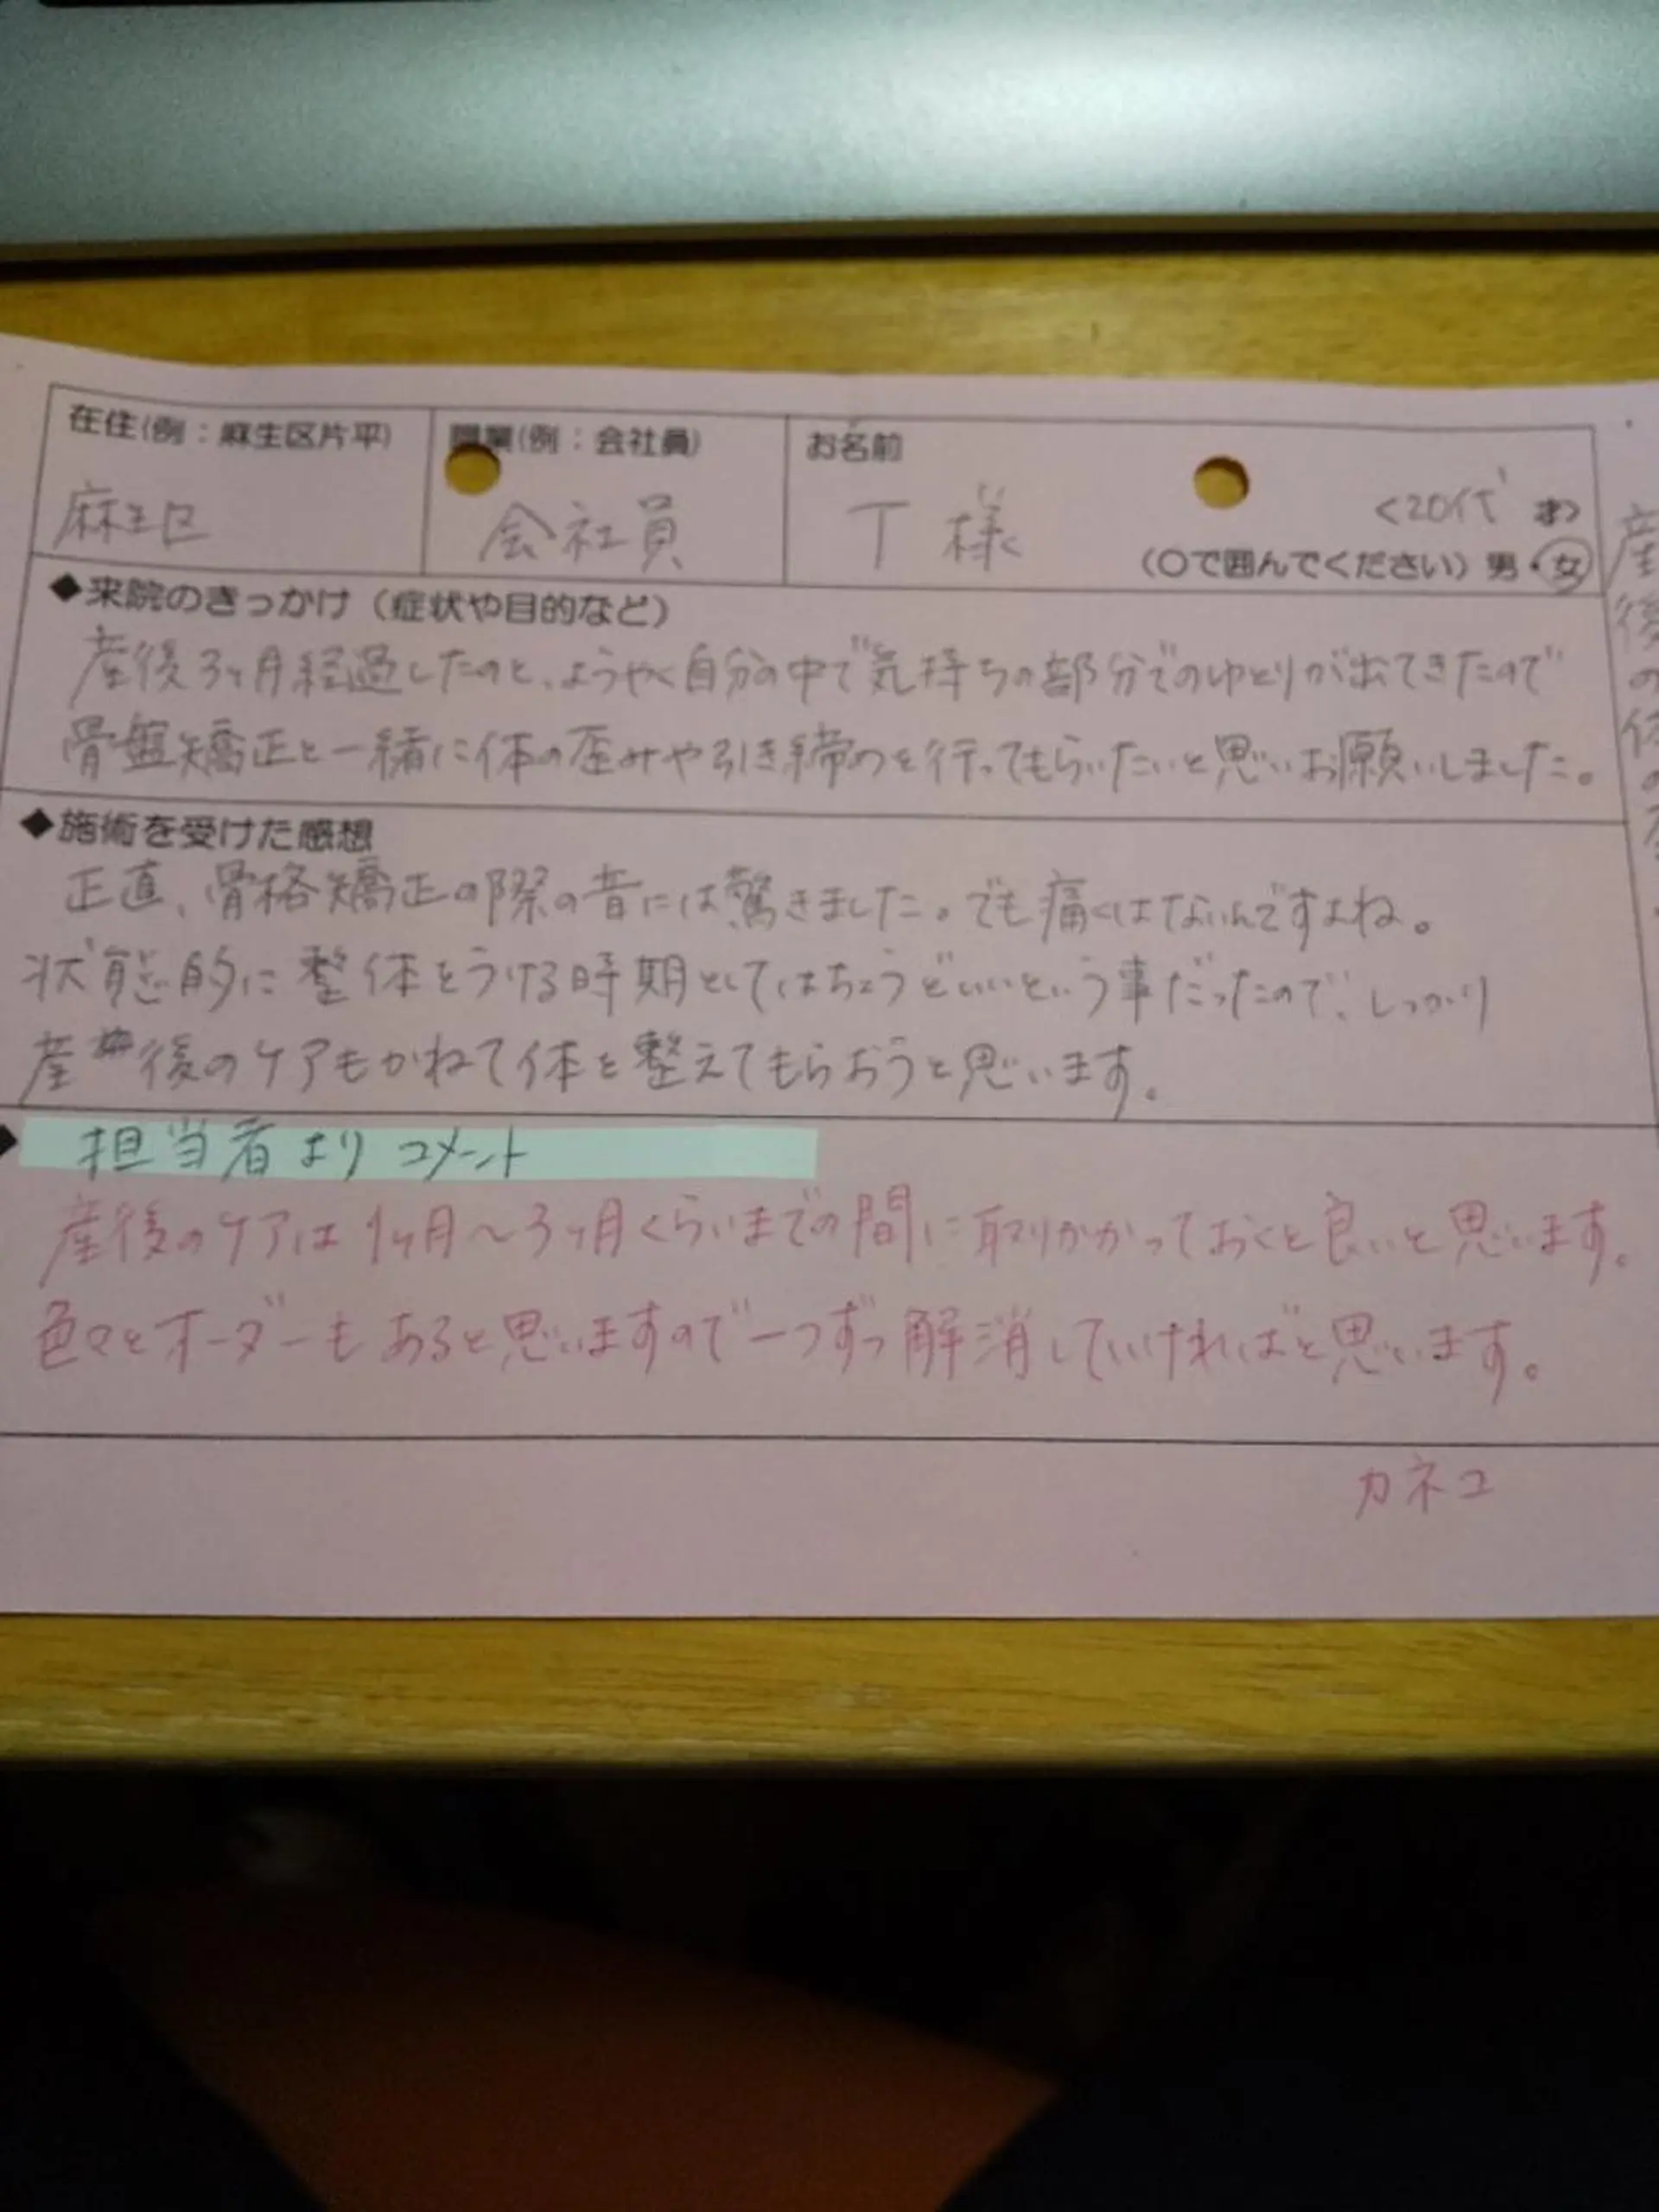 在住(例：麻生区片平)
職業(例：会社員)
お名前
麻生区
会社員
T 様
<20代 才>
(○で囲んでください) 男・女
◆来院のきっかけ（症状や目的など）
産後3ヶ月経過したのと、ようやく自分の中で気持ちの部分でのゆとりが出てきたので
骨盤矯正と一緒に体の歪みや引き締めを行ってもらいたいと思いお願いしました。
◆施術を受けた感想
正直、骨格矯正の際の音には驚きました。でも痛くはないんですよね。
状態的に整体をうける時期としてはちょうどいいという事だったので、しっかり
産後のケアもかねて体を整えてもらおうと思います。
◆担当者よりコメント
産後のケアは1ヶ月〜3ヶ月くらいまでの間に取りかかっておくと良いと思います。
色々とオーダーもあると思いますので一つずつ解消していければと思います。
カネコ
産後の体の